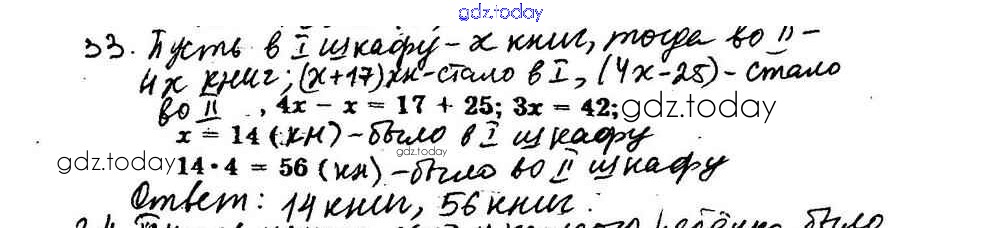 gdz.today
33. Пусть в I шкафу - x книг, тогда во II -
4x книг; (x+17) кн - стало в I, (4x-25) - стало
во II , 4x − x = 17 + 25; 3x = 42; gdz.today
x = 14 (кн) - было в I шкафу
gdz.today
gdz.today 14 · 4 = 56 (кн) - было во II шкафу
Ответ: 14 книг, 56 книг.
было